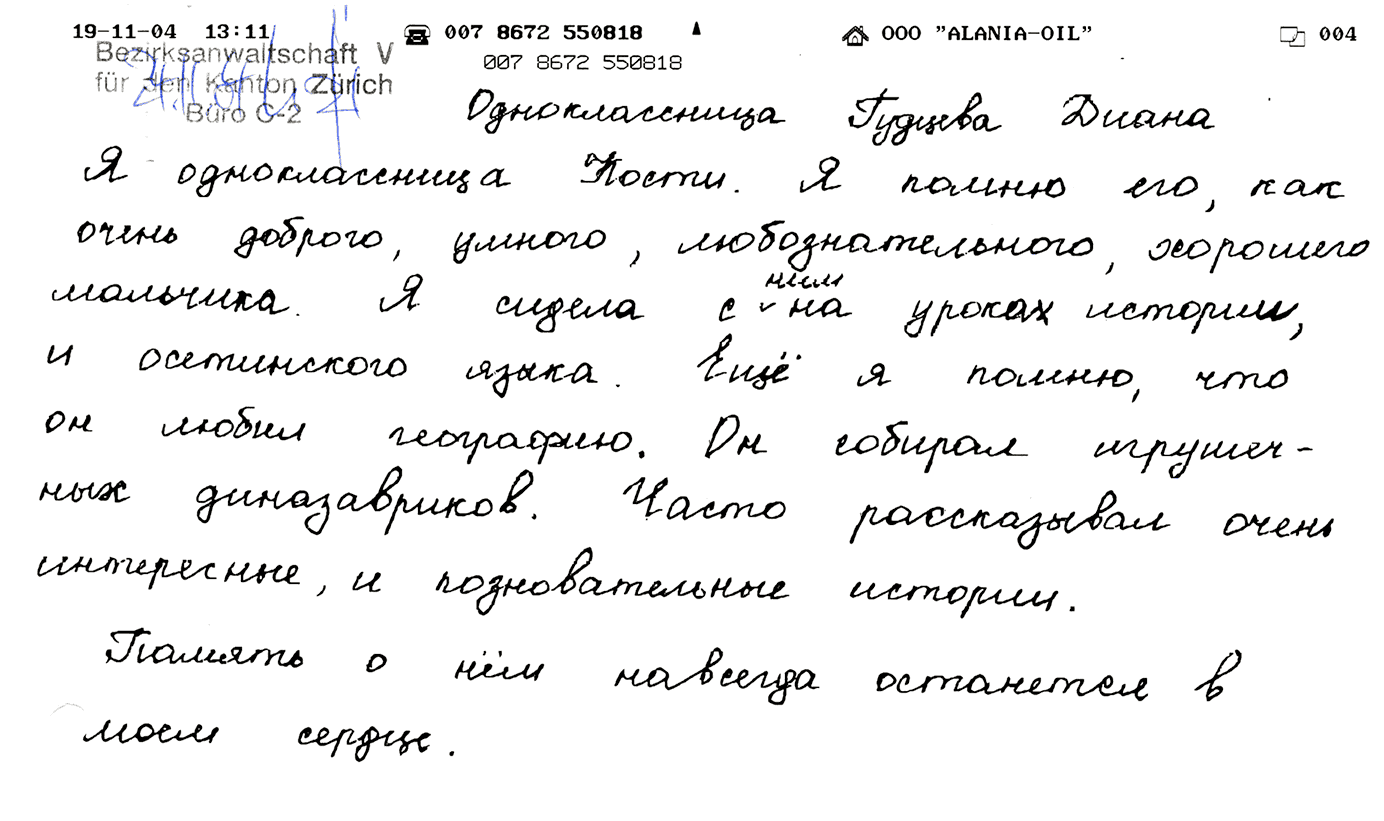 19-11-04 13:11 007 8672 550818 ООО "ALANIA-OIL" 004
007 8672 550818
Bezirksanwaltschaft V
für den Kanton Zürich
Büro C-2
Одноклассница Гудцева Диана
Я одноклассница Кости. Я помню его, как
очень доброго, умного, любознательного, хорошего
мальчика. Я сидела с ним на уроках истории,
и осетинского языка. Ещё я помню, что
он любил географию. Он собирал игрушеч-
ных диназавриков. Часто рассказывал очень
интересные, и позновательные истории.
Память о нём навсегда останется в
моем сердце.